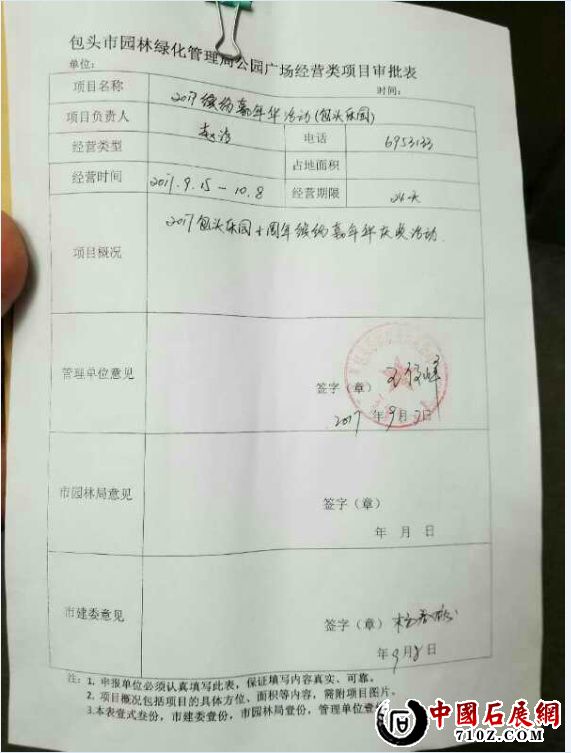 包头市园林绿化管理局公园广场经营类项目审批表
单位: 时间:
项目名称 2017缤纷嘉年华活动(包头乐园)
项目负责人 电话 6953133
经营类型 占地面积
经营时间 2017.9.15-10.8 经营期限 24天
项目概况 2017包头乐园十周年缤纷嘉年华庆典活动.
管理单位意见
签字(章)
2017年9月2日
市园林局意见
签字(章)
年 月 日
市建委意见
签字(章)
年9月8日
注: 1、申报单位必须认真填写此表,保证填写内容真实、可靠。
2、项目概况包括项目的具体方位、面积等内容,需附项目图片。
3.本表壹式叁份,市建委壹份,市园林局壹份,管理单位壹
中國石展網
710Z.COM